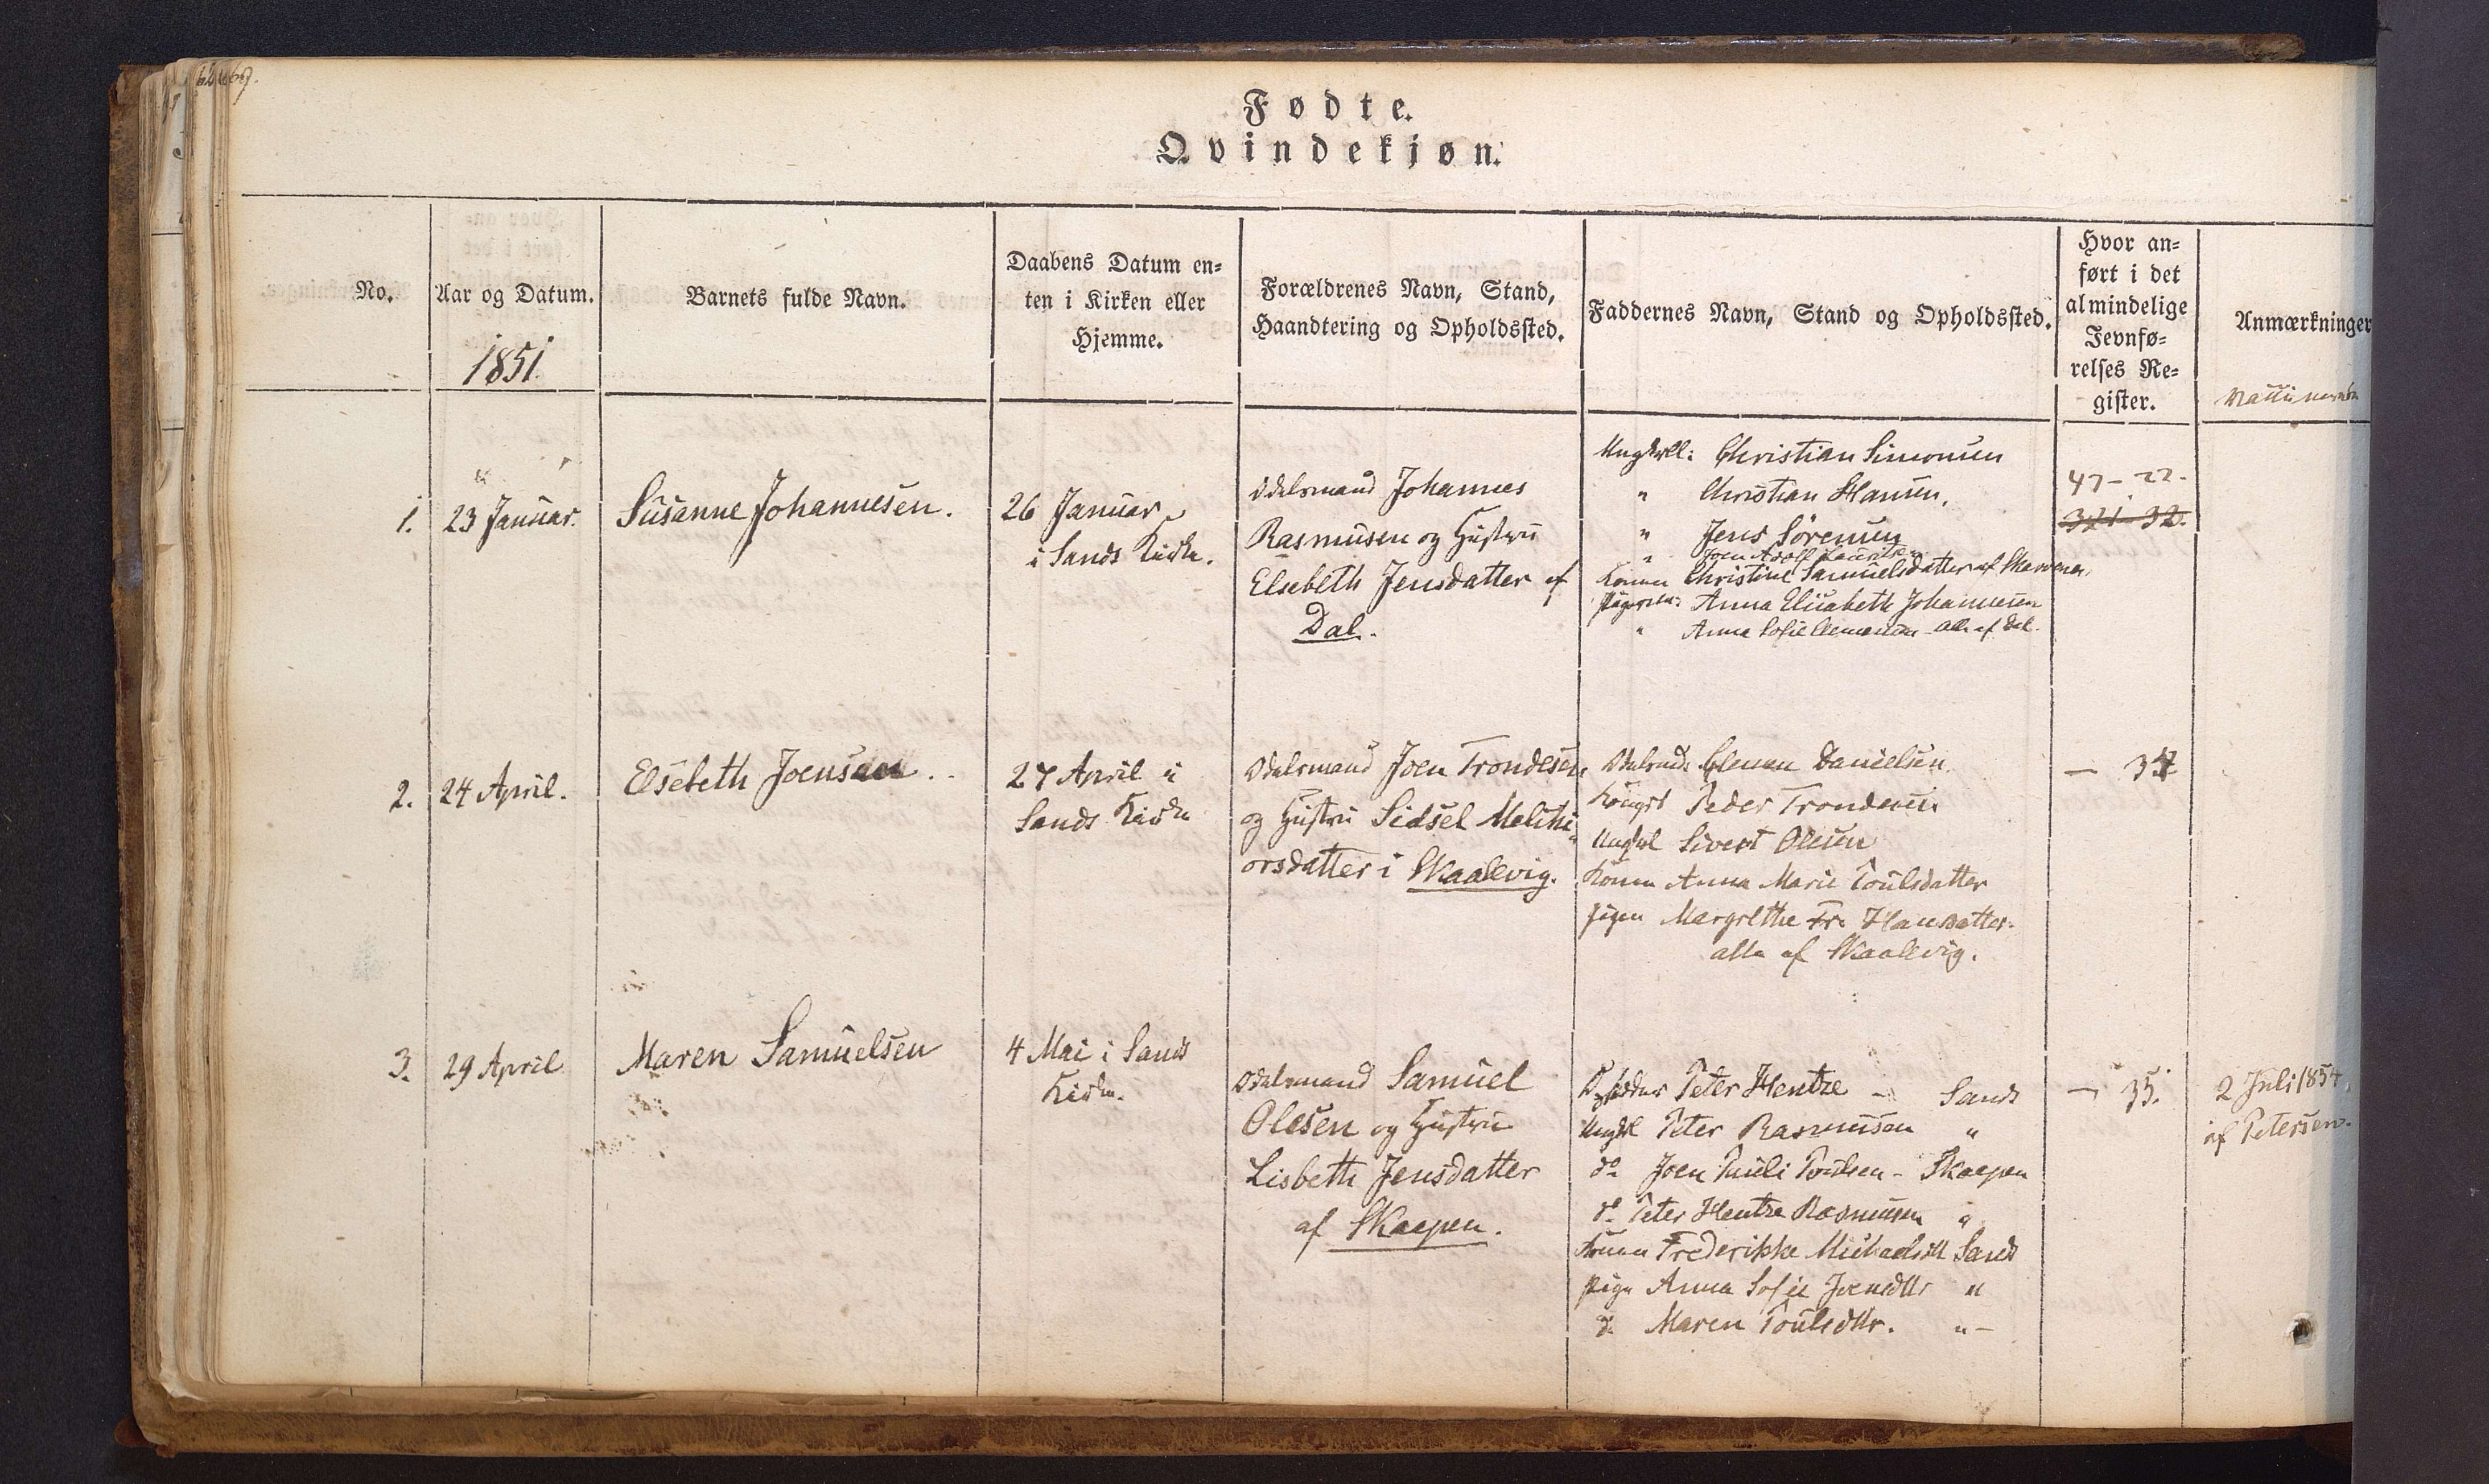 Fødte.
Qvindekjøn.
No.
Aar og Datum.
1851.
Barnets fulde Navn.
Daabens Datum en-
ten i Kirken eller
Hjemme.
Forældrenes Navn, Stand,
Haandtering og Opholdssted.
Faddernes Navn, Stand og Opholdssted.
Hvor an-
ført i det
almindelige
Jevnfø-
relses Re-
gister.
Anmærkninger
1.
23 Januar.
Susanne Johannesen.
26 Januar
i Sands Kirke.
Odelsmand Johannes
Rasmusen og Hustru
Elsebeth Jensdatter af
Dal.
Ungkrll: Christian Simonsen
" Christian Hansen,
" Jens Sörensen
" Joen Adolf
Konen Christine Samuelsdatter af
Pigerne: Anna Elisabeth Johannesen
" Anna Sofie Clemensen - Alle af Dal.
47 - 22.
321 - 32.
2.
24 April.
Elsebeth Joensen.
27 April i
Sands Kirke
Odelsmand Joen Trondesen
og Hustru Sidsel Melchi-
orsdatter i Skaalevig.
Odelsmd: Clemen Danielsen
Peder Trondesen
Ungkrl Sivert Olesen
Konen Anna Marie Poulsdatter
Pigen Margrethe Fr. Hansdatter.
alle af Skaalevig.
— 34
3.
29 April
Maren Samuelsen
4 Mai i Sands
Kirke.
Odelsmand Samuel
Olesen og Hustru
Lisbeth Jensdatter
af Skaapen.
Peter Hentze - Sands
Ungkl Peter Rasmussen "
do Joen Pauli Poulsen - Skaapen
do Peter Hentze Rasmussen "
Konen Frederikke Michaelsdtt Sands
Pige Anna Sofie Joensdttr "
d. Maren Poulsdttr. " -
— 35.
2 Juli 1854.
af Petersen.